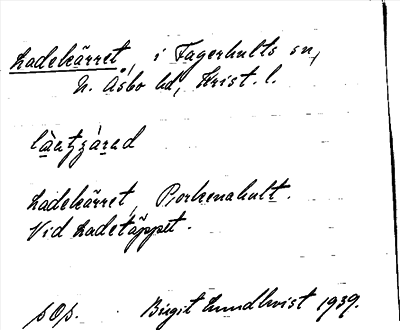 Ladekärret, i Fagerhults sn,
N. Åsbo hd, Krist. l.
Ladekärret, Porkenahult.
Vid Ladetäppet.
sOp. Birgit Lundkvist 1939.